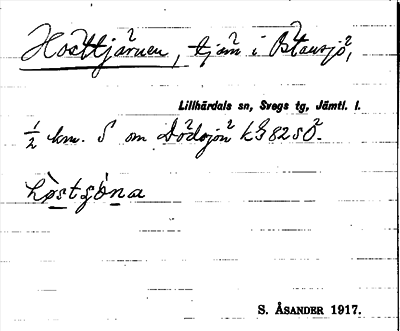 Hosttjärnen, tjärn i Östansjö,
Lillhärdals sn, Svegs tg, Jämtl. l.
½ km. S om Dödsjön k982SÖ.
hòstsònа
S. ÅSANDER 1917.